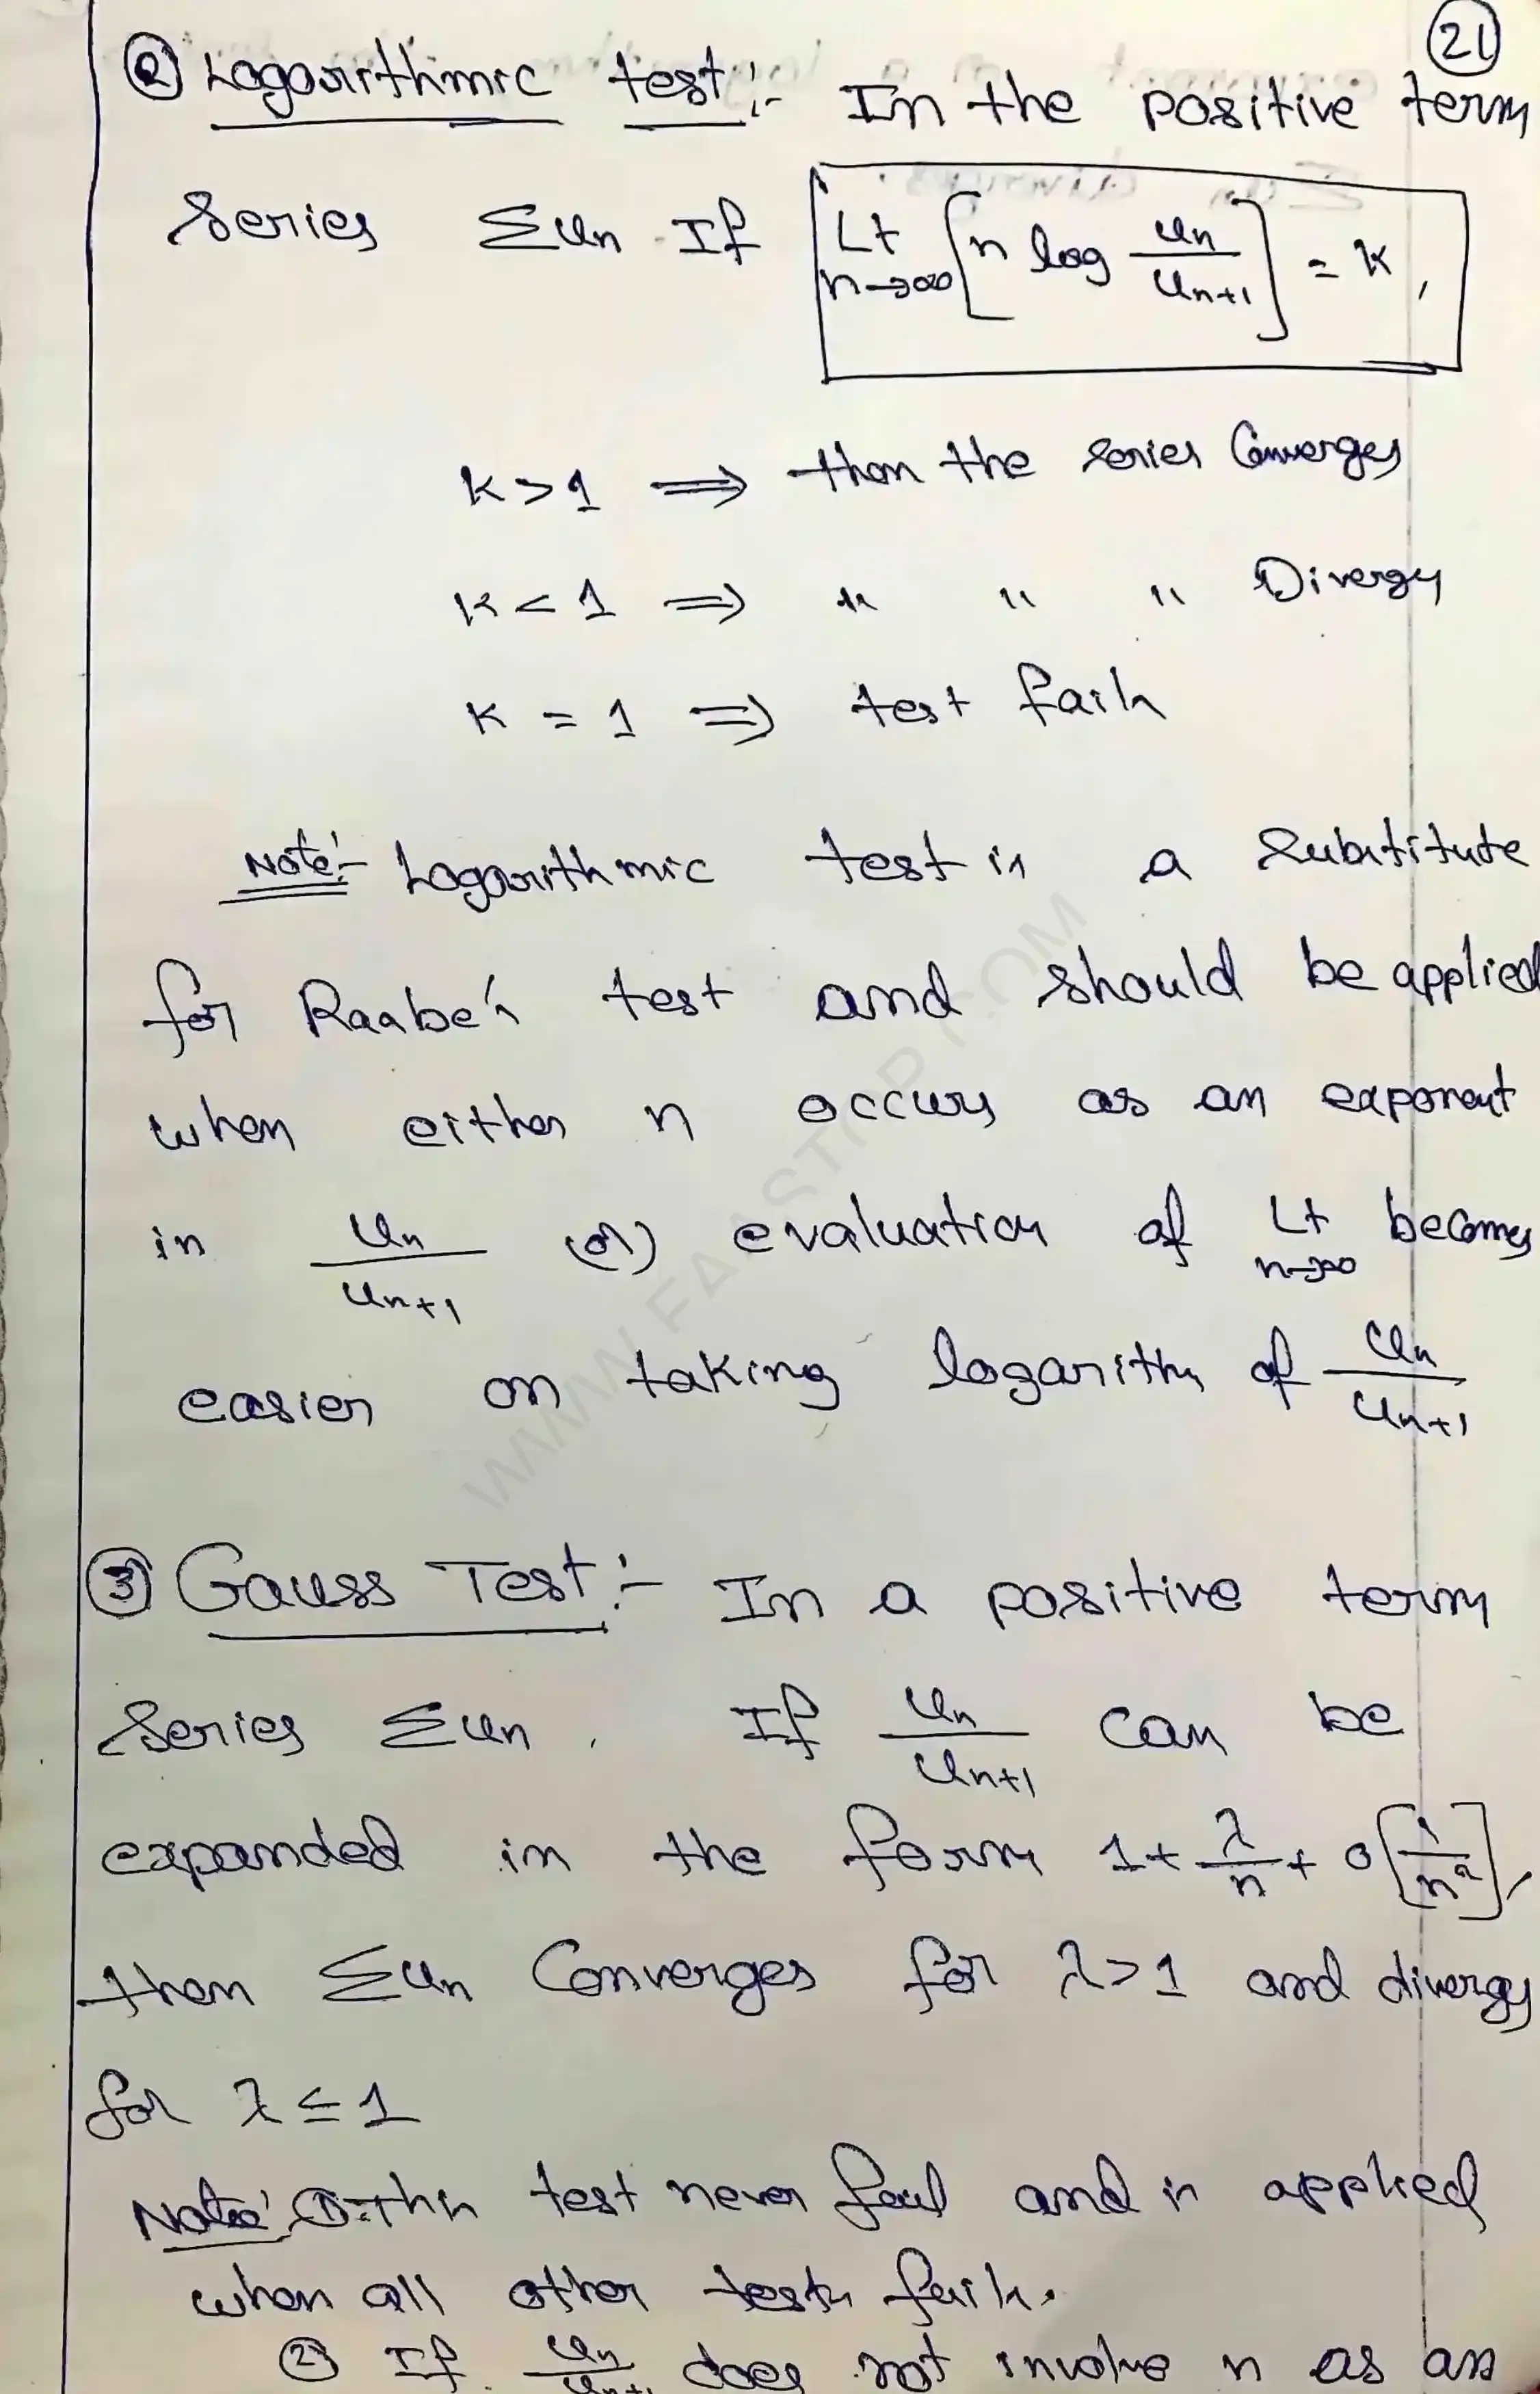 21
② Logarithmic test:- In the positive term
Series Σun If Lt n→∞ [n log un/un+1] = k,
k > 1 ⟹ then the series Converges
k < 1 ⟹ " " " Diverges
k = 1 ⟹ test fails
Note:- Logarithmic test is a substitute
for Raabe's test and should be applied
when either n occurs as an exponent
in un/un+1 (or) evaluation of Lt n→∞ becomes
easier on taking logarithm of un/un+1
③ Gauss Test:- In a positive term
Series Σun. If un/un+1 can be
expanded in the form 1 + λ/n + O[1/n²],
then Σun Converges for λ>1 and diverges
for λ ≤ 1
Note: ①. This test never fail and is applied
when all other tests fails.
② If un/un+1 does not involve n as an
WWW.FAASTOP.COM